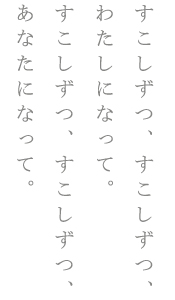 すこしずつ、すこしずつ、
わたしになって。
すこしずつ、すこしずつ、
あなたになって。